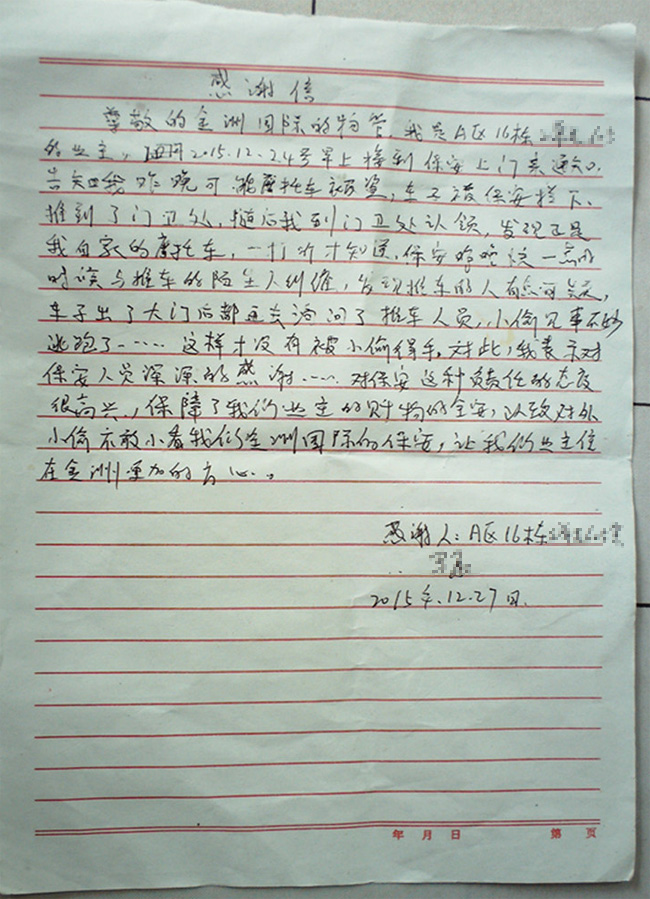 感谢信
尊敬的金洲国际的物管,我是A区16栋
的业主,2015.12.24号早上接到保安上门来通知
告知我昨晚可能摩托车被盗,车子被保安拦下、
推到了门卫处,随后我到门卫处认领,发现正是
我自家的摩托车,一打听才知道,保安昨晚
时误与推车的陌生人纠缠,发现推车的人有点可疑,
车子出了大门后都还去追问了推车人员,小偷见事不妙
逃跑了……这样才没有被小偷得手。对此,我表示对
保安人员深深的感谢……对保安这种负责任的态度
很高兴,保障了我们业主的财物的安全,以致对外
小偷不敢小看我们金洲国际的保安,让我们业主住
在金洲更加的方心。。
感谢人:A区16栋
2015年.12.27日.
年 月 日 第 页